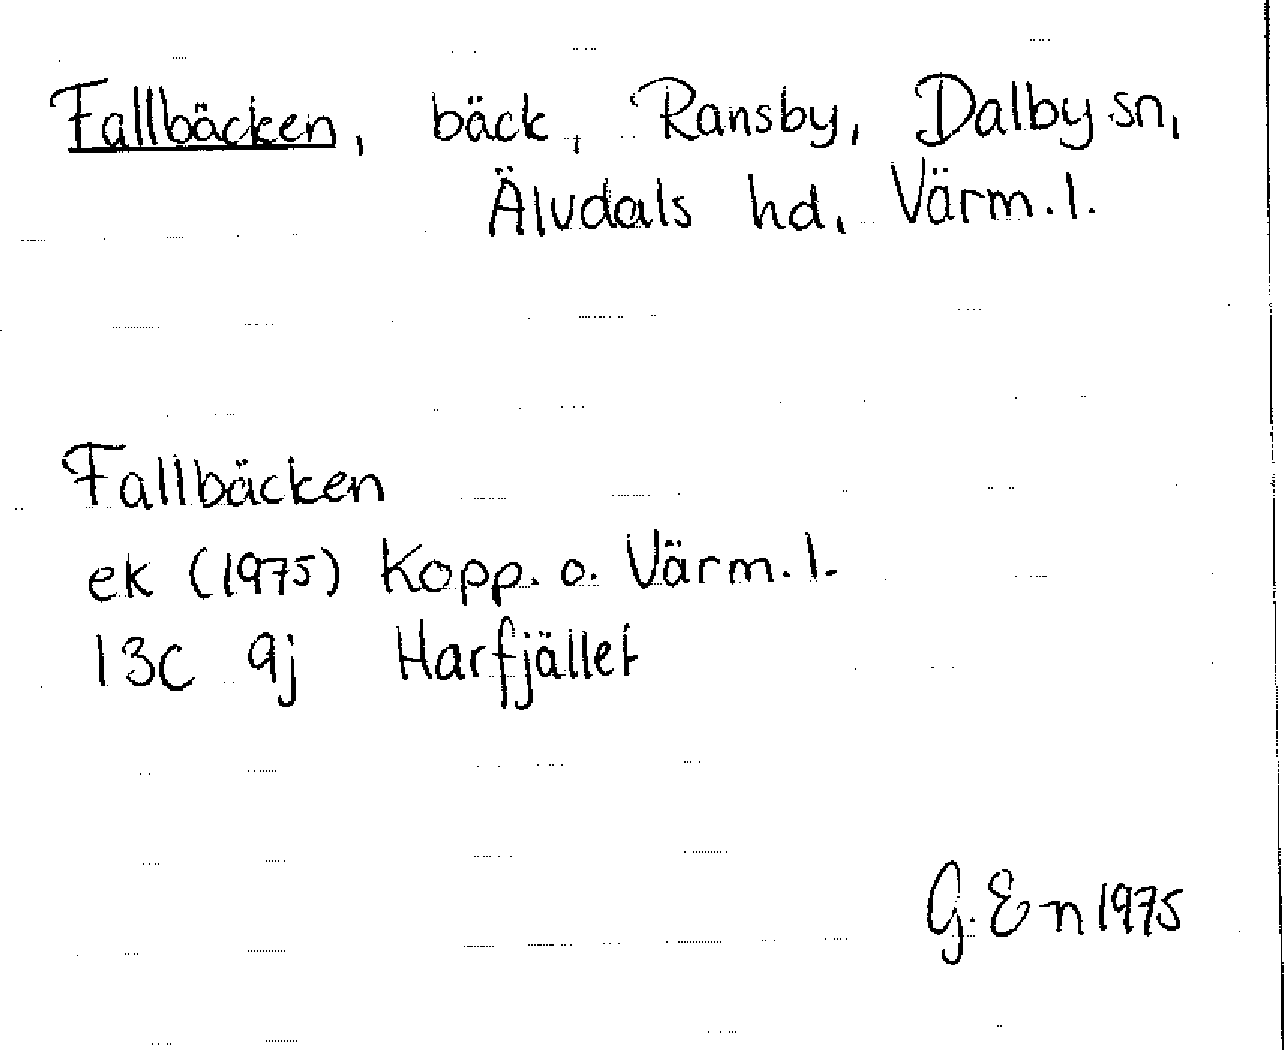 Fallbäcken, bäck, Ransby, Dalby sn,
Älvdals hd, Värm. l.
Fallbäcken
ek (1975) Kopp. o. Värm. l.
13C 9j Harfjället
G. E-n 1975